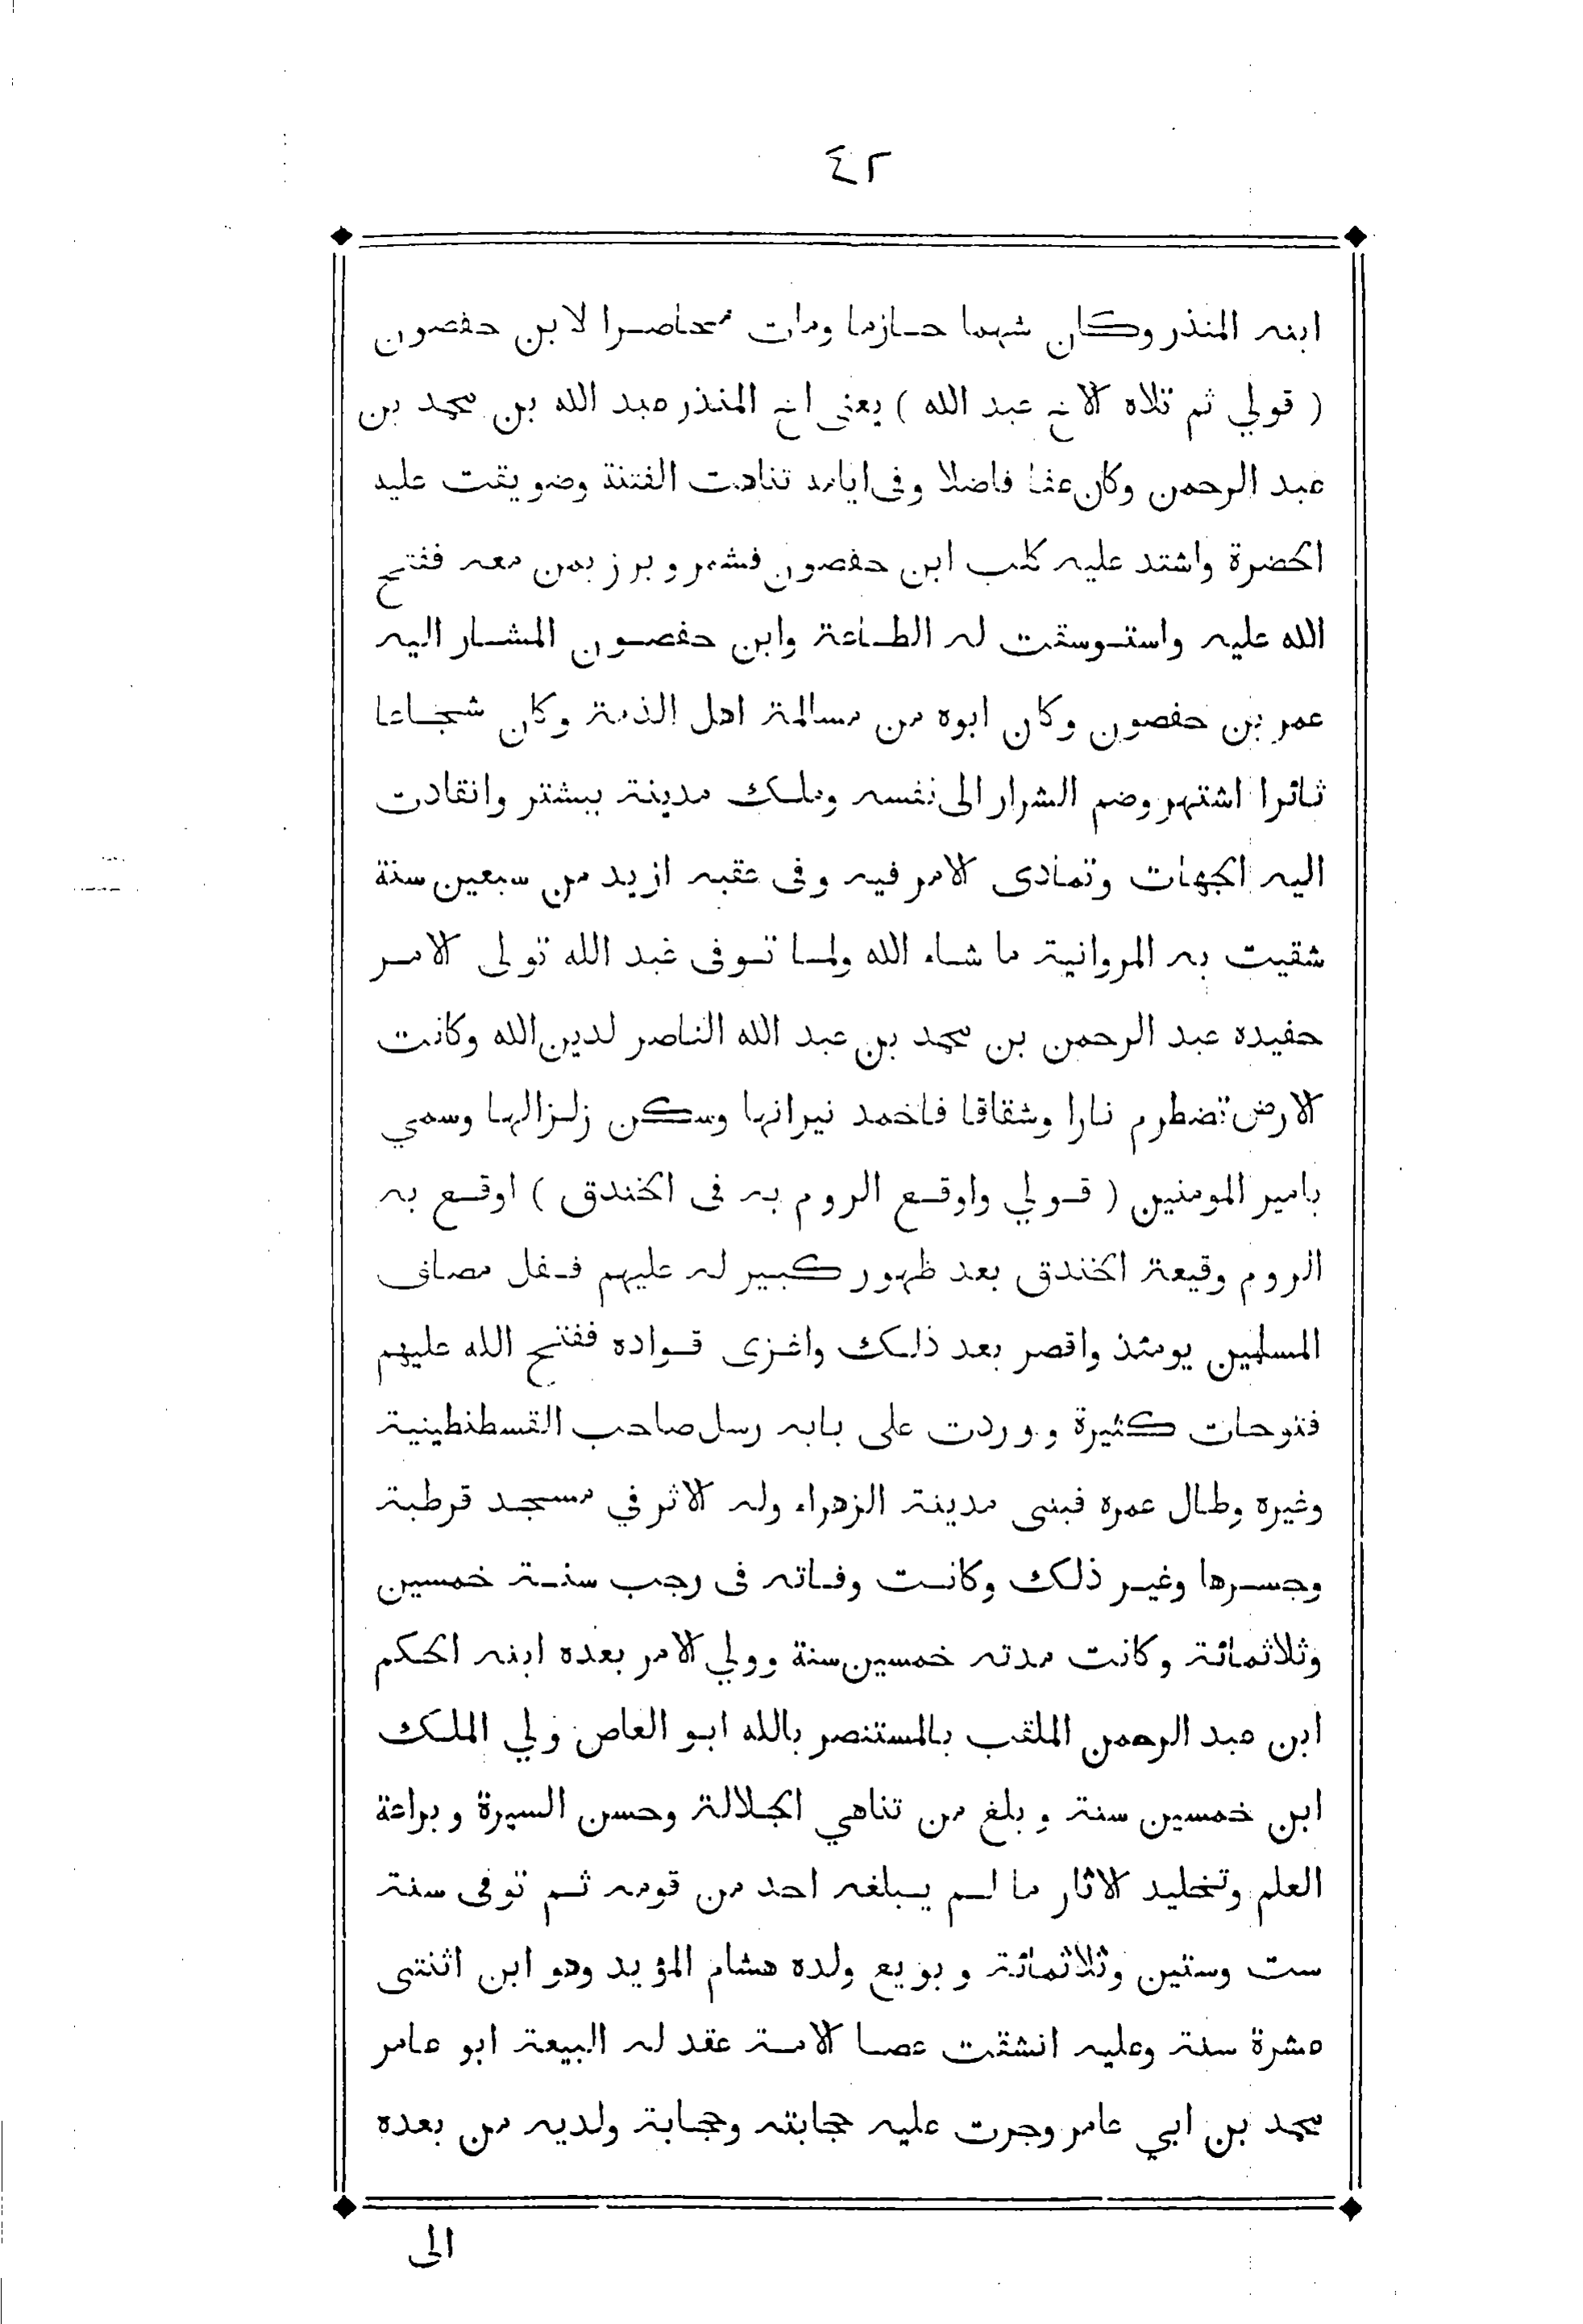 ٤٢
ابنه المنذر وكان شهما حازما ومات محاصرا لابن حفصون
( قولي ثم تلاه الاخ عبد الله ) يعنى اخ المنذر عبد الله بن محمد بن
عبد الرحمن وكان عفا فاضلا وفى ايامه تناهت الفتنة وضويقت عليه
الحضرة واشتد عليه كلب ابن حفصون فشمر وبرز بمن معه ففتح
الله عليه واستوسقت له الطاعة وابن حفصون المشار اليه
عمر بن حفصون وكان ابوه من مسالمة اهل الذمة وكان شجاعا
ثائرا اشتهر وضم الشرار الى نفسه وملك مدينة ببشتر وانقادت
اليه الجهات وتمادى الامر فيه وفى عقبه ازيد من سبعين سنة
شقيت به المروانية ما شاء الله ولما توفى عبد الله تولى الامر
حفيده عبد الرحمن بن محمد بن عبد الله الناصر لدين الله وكانت
الارض تضطرم نارا وشقاقا فاخمد نيرانها وسكن زلزالها وسمي
بامير المومنين ( قولي واوقع الروم به فى الخندق ) اوقع به
الروم وقيعة الخندق بعد ظهور كبير له عليهم ففل مصاف
المسلمين يومئذ واقصر بعد ذلك واغزى قواده ففتح الله عليهم
فتوحات كثيرة ووردت على بابه رسل صاحب القسطنطينية
وغيره وطال عمره فبنى مدينة الزهراء وله الاثر في مسجد قرطبة
وجسرها وغير ذلك وكانت وفاته فى رجب سنة خمسين
وثلاثمائة وكانت مدته خمسين سنة وولي الامر بعده ابنه الحكم
ابن عبد الرحمن الملقب بالمستنصر بالله ابو العاص ولي الملك
ابن خمسين سنة وبلغ من تناهي الجلالة وحسن السيرة وبراعة
العلم وتخليد الاثار ما لم يبلغه احد من قومه ثم توفى سنة
ست وستين وثلاثمائة وبويع ولده هشام المؤيد وهو ابن اثنتى
عشرة سنة وعليه انشقت عصا الامة عقد له البيعة ابو عامر
محمد بن ابي عامر وجرت عليه حجابته وحجابة ولديه من بعده
الى